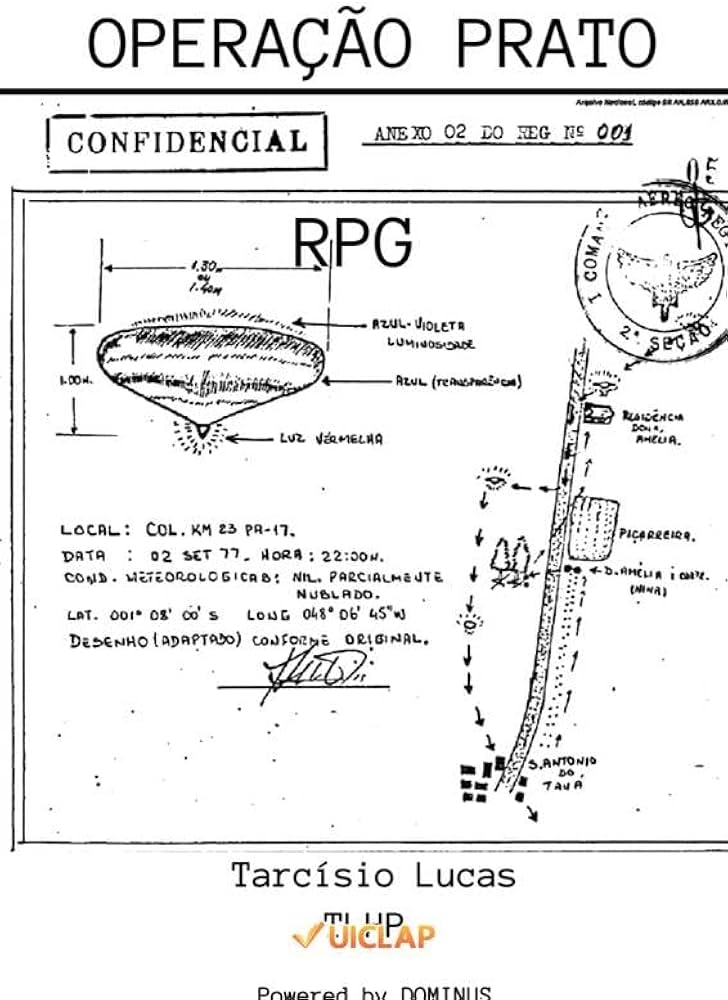 OPERAÇÃO PRATO
Arquivo Nacional, código BR AN,BSB ARX.0.
CONFIDENCIAL
ANEXO 02 DO REG Nº 001
RPG
I COMA
AEREO REG
2ª SEÇÃO
1.30m
ou
1.40m
1.00M.
AZUL-VIOLETA
LUMINOSIDADE
AZUL (TRANSPARÊNCIA)
LUZ VERMELHA
RESIDÊNCIA
DONA.
AMÉLIA.
PIÇARREIRA.
D. AMÉLIA
(NINA)
LOCAL: COL. KM 23 PA-17.
DATA : 02 SET 77. HORA: 22:00H.
COND. METEOROLOGICAS: NIL. PARCIALMENTE
NUBLADO.
LAT. 001º 08' 00' S LONG 048º 06' 45"W
DESENHO (ADAPTADO) CONFORME ORIGINAL.
S. ANTONIO
DO
TAUÁ
Tarcísio Lucas
UICLAP
Powered by DOMINUS